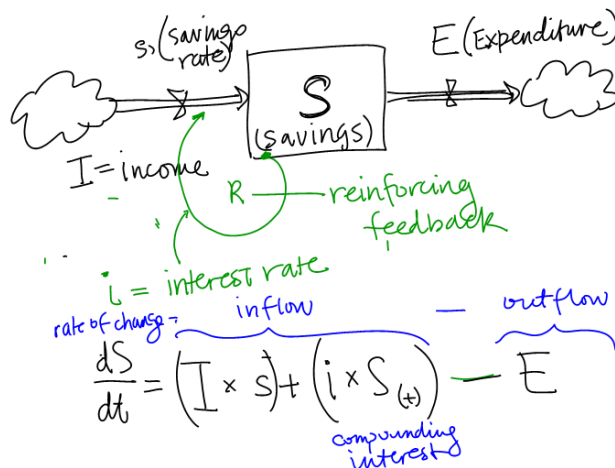 s, (savings
rate)
E (Expenditure)
S
(savings)
I = income
R
reinforcing
feedback
i = interest rate
rate of change =
inflow
—
outflow
dS/dt = (I × s) + (i × S(t)) — E
compounding
interest